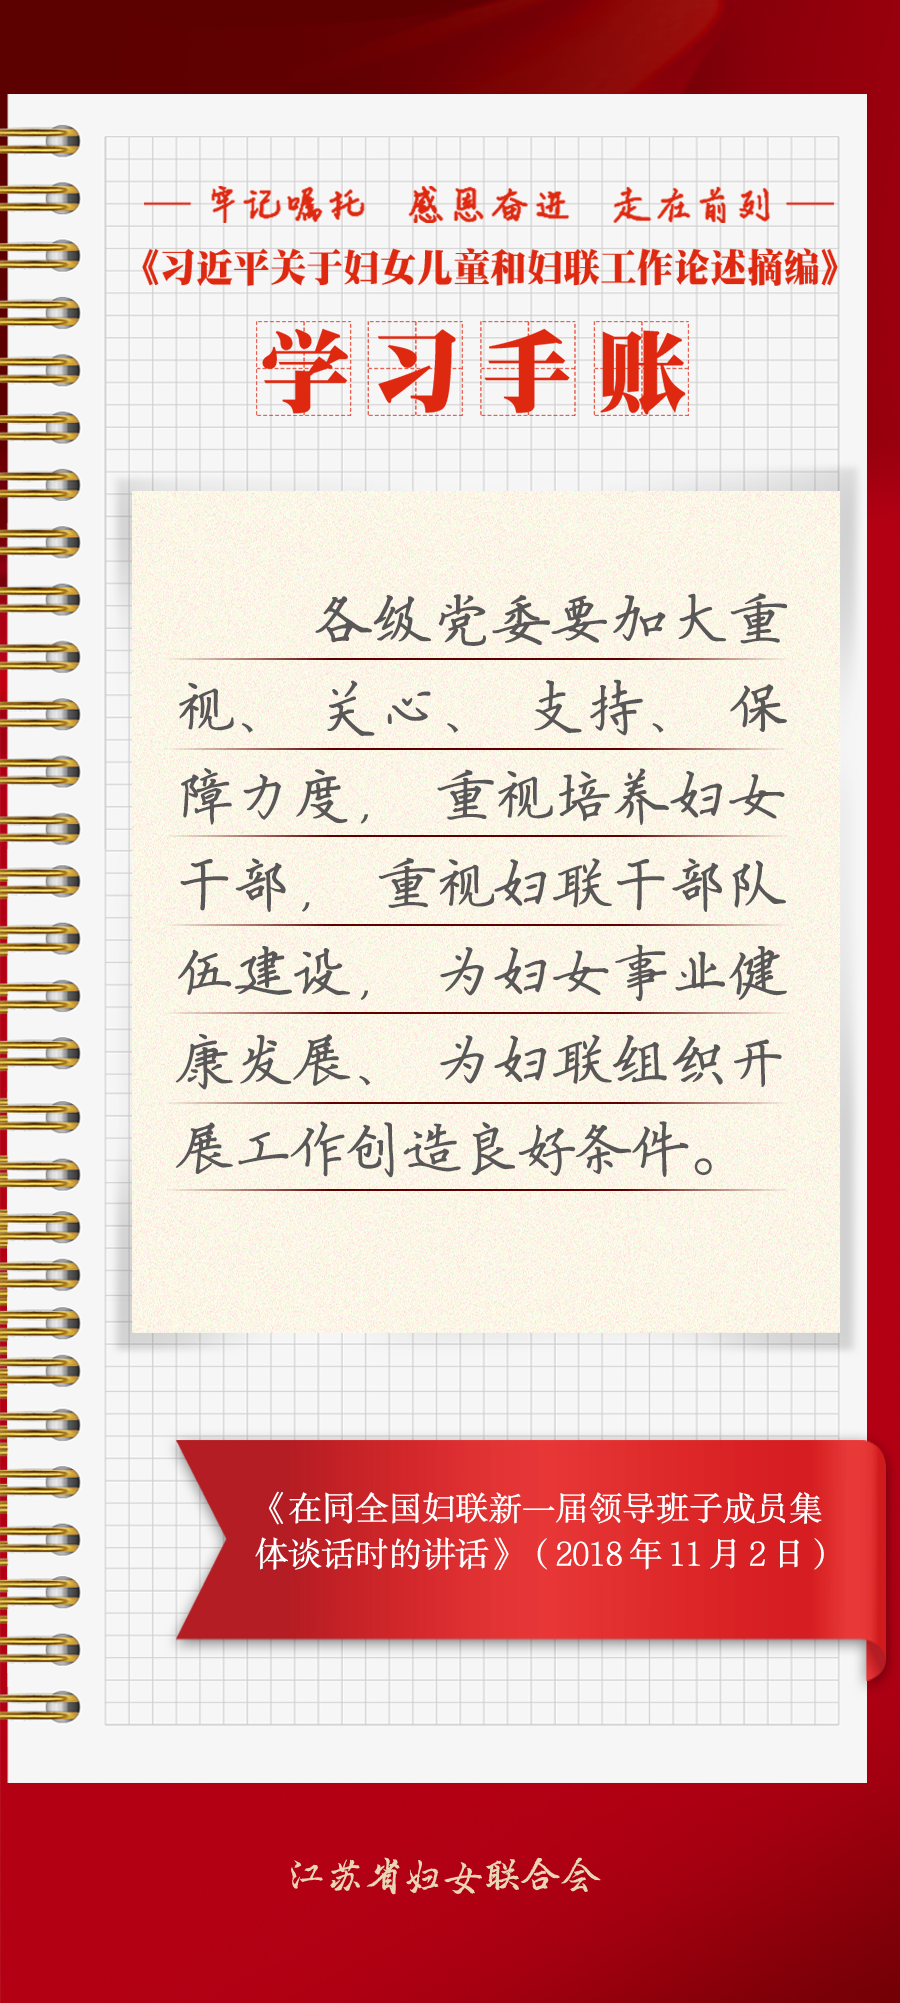 牢记嘱托 感恩奋进 走在前列
《习近平关于妇女儿童和妇联工作论述摘编》
学习手账
各级党委要加大重
视、关心、支持、保
障力度，重视培养妇女
干部，重视妇联干部队
伍建设，为妇女事业健
康发展、为妇联组织开
展工作创造良好条件。
《在同全国妇联新一届领导班子成员集
体谈话时的讲话》（2018年11月2日）
江苏省妇女联合会